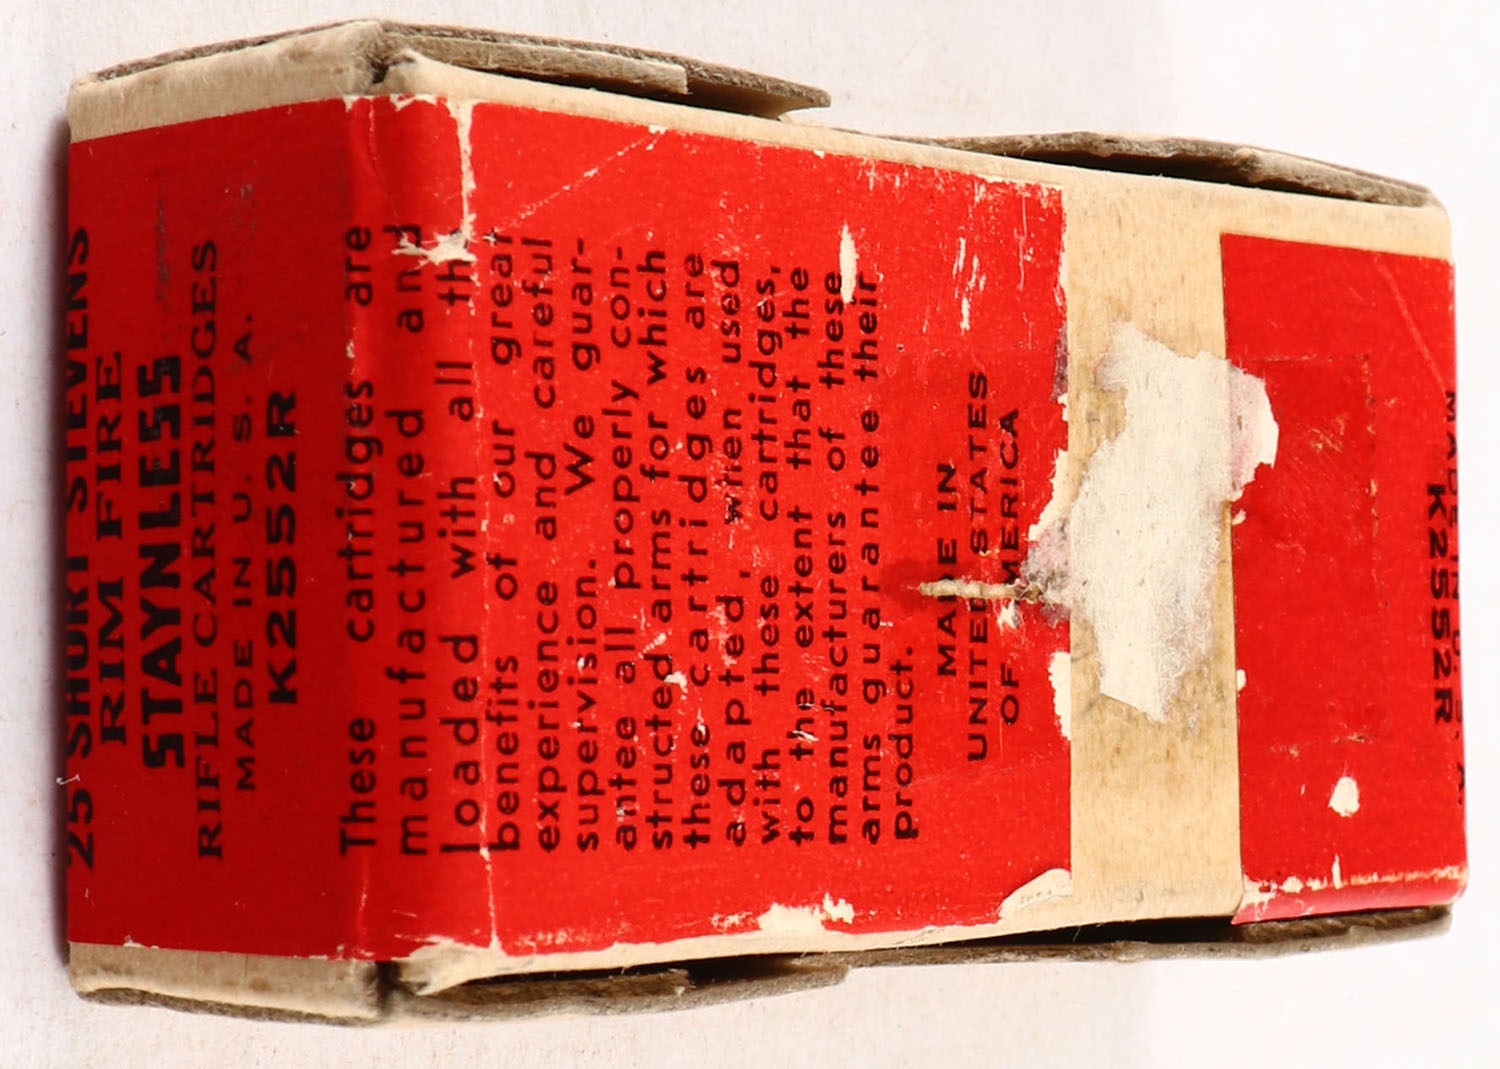 25 SHORT STEVENS
RIM FIRE
STAYNLESS
RIFLE CARTRIDGES
MADE IN U. S. A.
K2552R
These cartridges are
manufactured and
loaded with all the
benefits of our great
experience and careful
supervision. We guar-
antee all properly con-
structed arms for which
these cartridges are
adapted, when used
with these cartridges,
to the extent that the
manufacturers of these
arms guarantee their
product.
MADE IN
UNITED STATES
OF AMERICA
K2552R
MADE IN U. S. A.